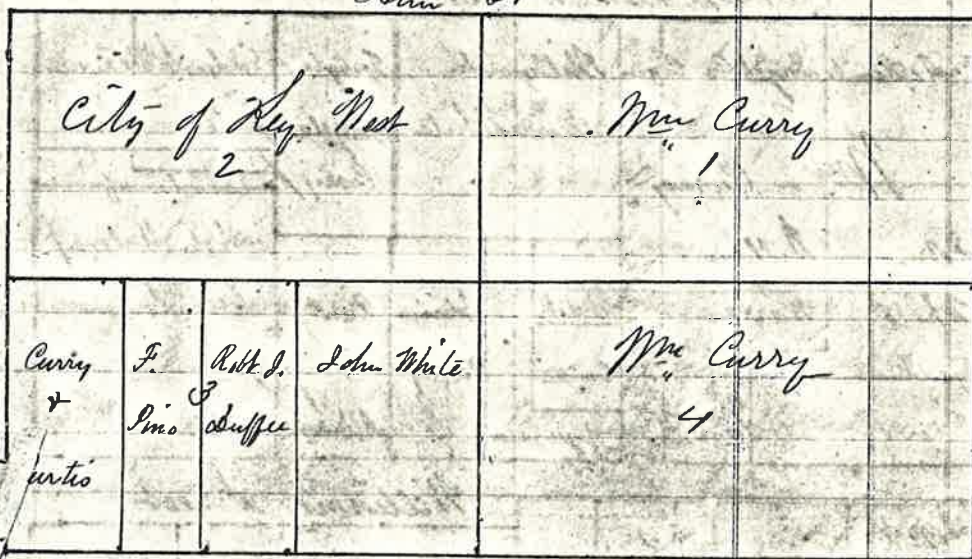 City of Key West
2
Wm Curry
1
Curry
&
urtis
F.
Pino
3
Robt J.
Duffee
John White
Wm Curry
4